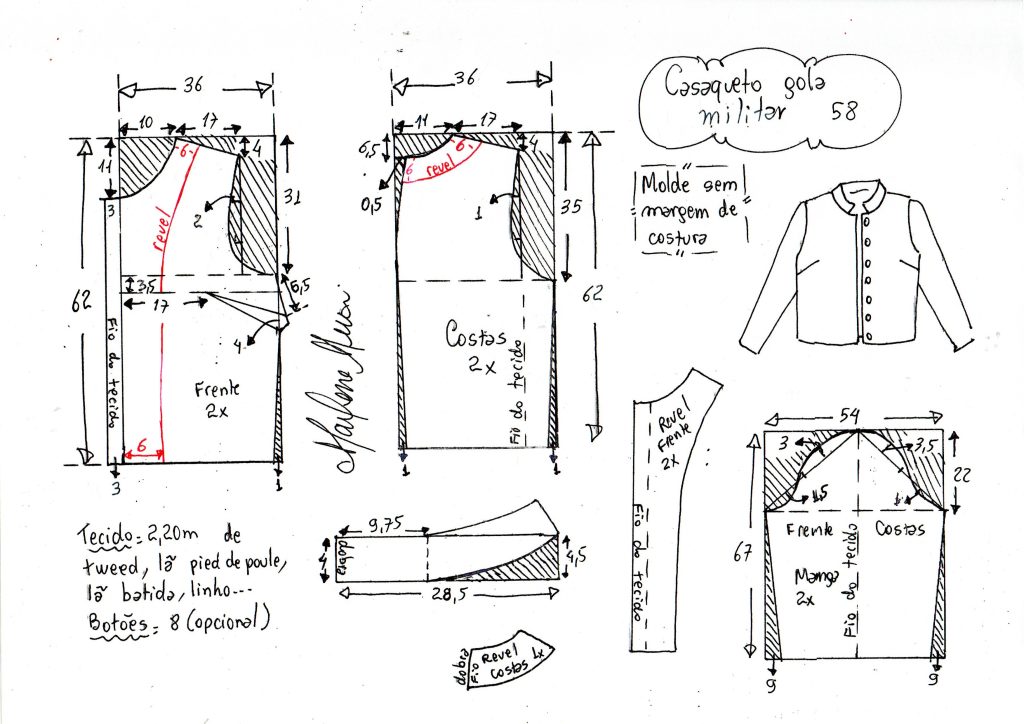 Casaqueto gola
militar 58
Molde sem
margem de
costura
36
10
17
11
4
3
6
revel
2
31
3,5
17
6,5
4
62
Fio do tecido
Frente
2x
6
3
1
Marlene Mukai
36
11
17
6,5
4
6
6
revel
0,5
1
35
62
Costas
2x
Fio do tecido
1
1
Tecido = 2,20m de
tweed, lã pied de poule,
lã batida, linho---
Botões = 8 (opcional)
9,75
4
dobra
4,5
28,5
dobra
Fio
Revel
costas 1x
Revel
Frente
2x
Fio do tecido
54
3
3,5
22
1,5
1
Frente
Costas
67
Manga
2x
Fio do tecido
9
9